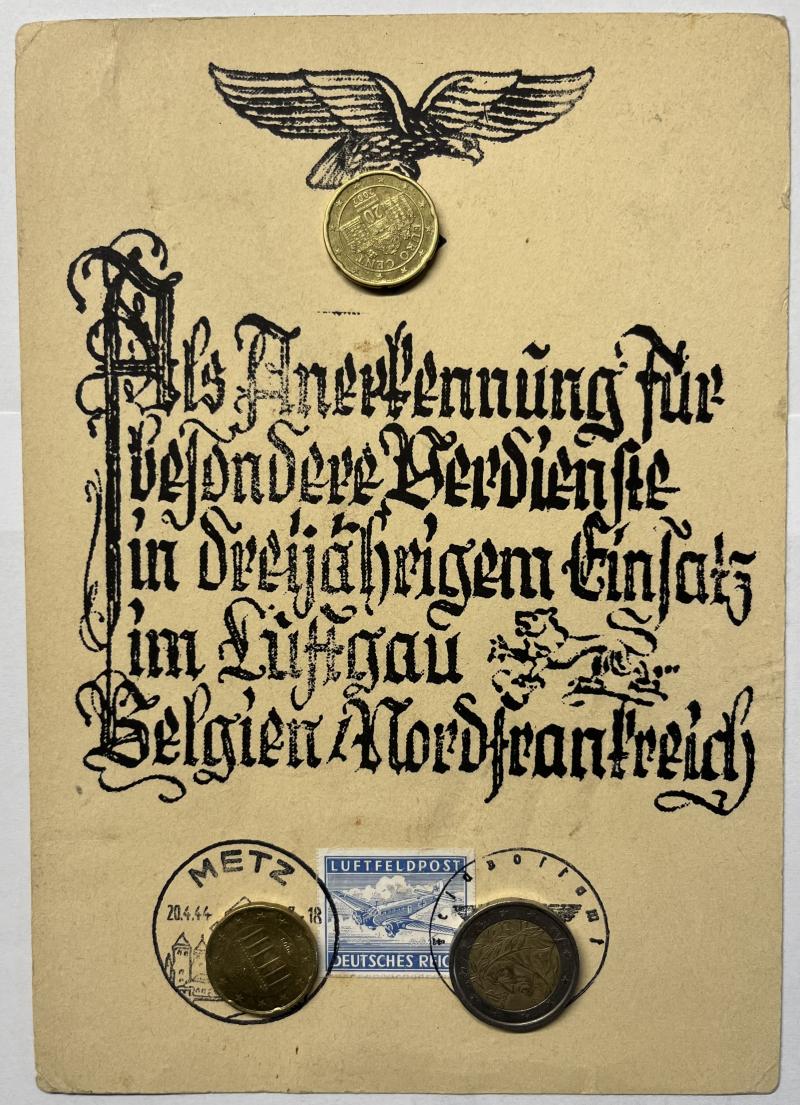 20
EURO CENT
2007
Als Anerkennung für
besondere Verdienste
in dreijährigem Einsatz
im Luftgau
Belgien/Nordfrankreich
METZ
20.4.44
-18
LUFTFELDPOST
DEUTSCHES REIC